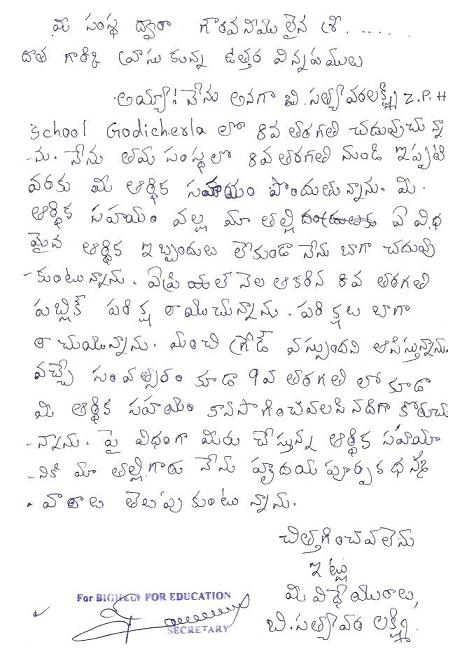 మీ సంస్థ ద్వారా గౌరవనీయులైన శ్రీ......
దాత గార్కి వ్రాసుకున్న ఉత్తర విన్నపములు
అయ్యా! నేను అనగా బి.సత్యావరలక్ష్మి Z.P.H
School Godicherla లో 8వ తరగతి చదువుచున్నా
-ను. నేను తమ సంస్థలో 8వ తరగతి నుండి ఇప్పటి
వరకు మీ ఆర్థిక సహాయం పొందుతున్నాను. మీ
ఆర్థిక సహయం వల్ల మా తల్లి ఏ విధ
మైన ఆర్థిక ఇబ్బందులు లేకుండా నేను బాగా చదువు
-కుంటున్నాను. ఏప్రియల్ నెల ఆకరిన 8వ తరగతి
పబ్లిక్ పరిక్ష రాయుచున్నాను. పరిక్షలు బాగా
రాచుయున్నాను. మంచి గ్రేడ్ వస్తుందని ఆసిస్తున్నాను.
వచ్చే సంవత్సరం కూడా 9వ తరగతి లో కూడా
మీ ఆర్థిక సహయం కొనసాగించవలసినదిగా కోరుచు
-న్నాను. పై విధంగా మీరు చేస్తున్న ఆర్థిక సహయా
-నికి మా తల్లిగారు నేను హృదయ పూర్వక ధన్య
-వాదాలు తెలుపుకుంటున్నాను.
చిత్తగించవలెను
ఇట్లు
మీ విధేయురాలు,
బి.సత్యావర లక్ష్మి.
For BIGHELP FOR EDUCATION
SECRETARY